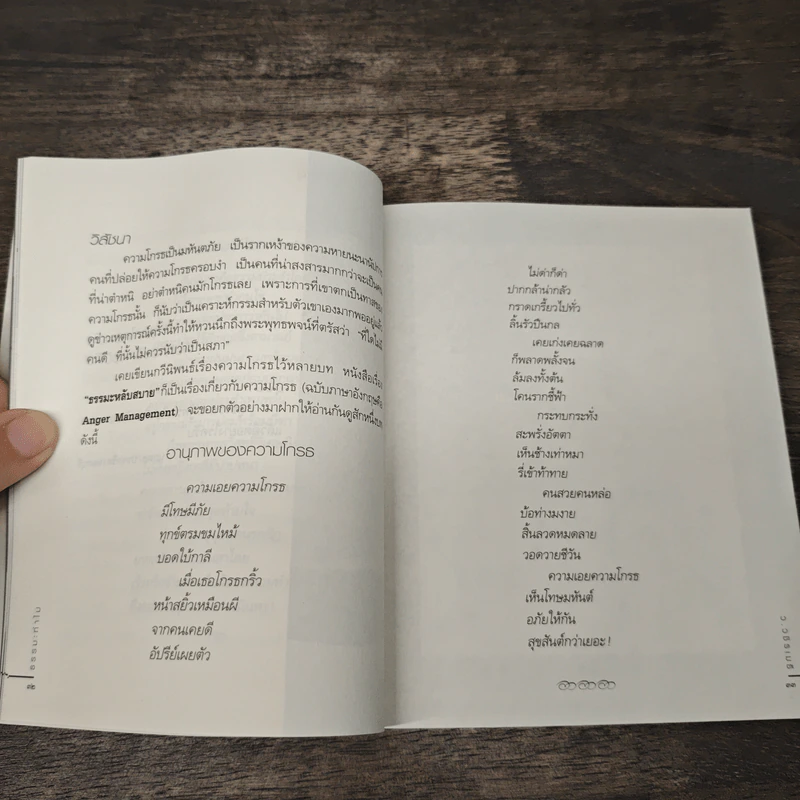 วิสัชนา
ความโกรธเป็นมหันตภัย เป็นรากเหง้าของความหายนะนานัปการ
คนที่ปล่อยให้ความโกรธครอบงำ เป็นคนที่น่าสงสารมากกว่าจะเป็นคน
ที่น่าตำหนิ อย่าตำหนิคนมักโกรธเลย เพราะการที่เขาตกเป็นทาสของ
ความโกรธนั้น ก็นับว่าเป็นเคราะห์กรรมสำหรับตัวเขาเองมากพออยู่แล้ว
ดูข่าวเหตุการณ์ครั้งนี้ทำให้หวนนึกถึงพระพุทธพจน์ที่ตรัสว่า "ที่ใดไม่มี
คนดี ที่นั้นไม่ควรนับว่าเป็นสภา"
เคยเขียนกวีนิพนธ์เรื่องความโกรธไว้หลายบท หนังสือเรื่อง
"ธรรมะหลับสบาย" ก็เป็นเรื่องเกี่ยวกับความโกรธ (ฉบับภาษาอังกฤษคือ
Anger Management) จะขอยกตัวอย่างมาฝากให้อ่านกันดูสักหนึ่งบท
ดังนี้
อานุภาพของความโกรธ
ความเอยความโกรธ
มีโทษมีภัย
ทุกข์ตรมขมไหม้
บอดใบ้กาลี
เมื่อเธอโกรธกริ้ว
หน้าสยิ้วเหมือนผี
จากคนเคยดี
อัปรีย์เผยตัว
ธรรมะทำไม
ไม่ด่าก็ด่า
ปากกล้าน่ากลัว
กราดเกรี้ยวไปทั่ว
ลิ้นรัวปืนกล
เคยเก่งเคยฉลาด
ก็พลาดพลั้งจน
ล้มลงทั้งต้น
โคนรากชี้ฟ้า
กระทบกระทั่ง
สะพรั่งอัตตา
เห็นช้างเท่าหมา
รี่เข้าท้าทาย
คนสวยคนหล่อ
บ้อท่างมงาย
สิ้นลวดหมดลาย
วอดวายชีวัน
ความเอยความโกรธ
เห็นโทษมหันต์
อภัยให้กัน
สุขสันต์กว่าเยอะ!
ว.วชิรเมธี